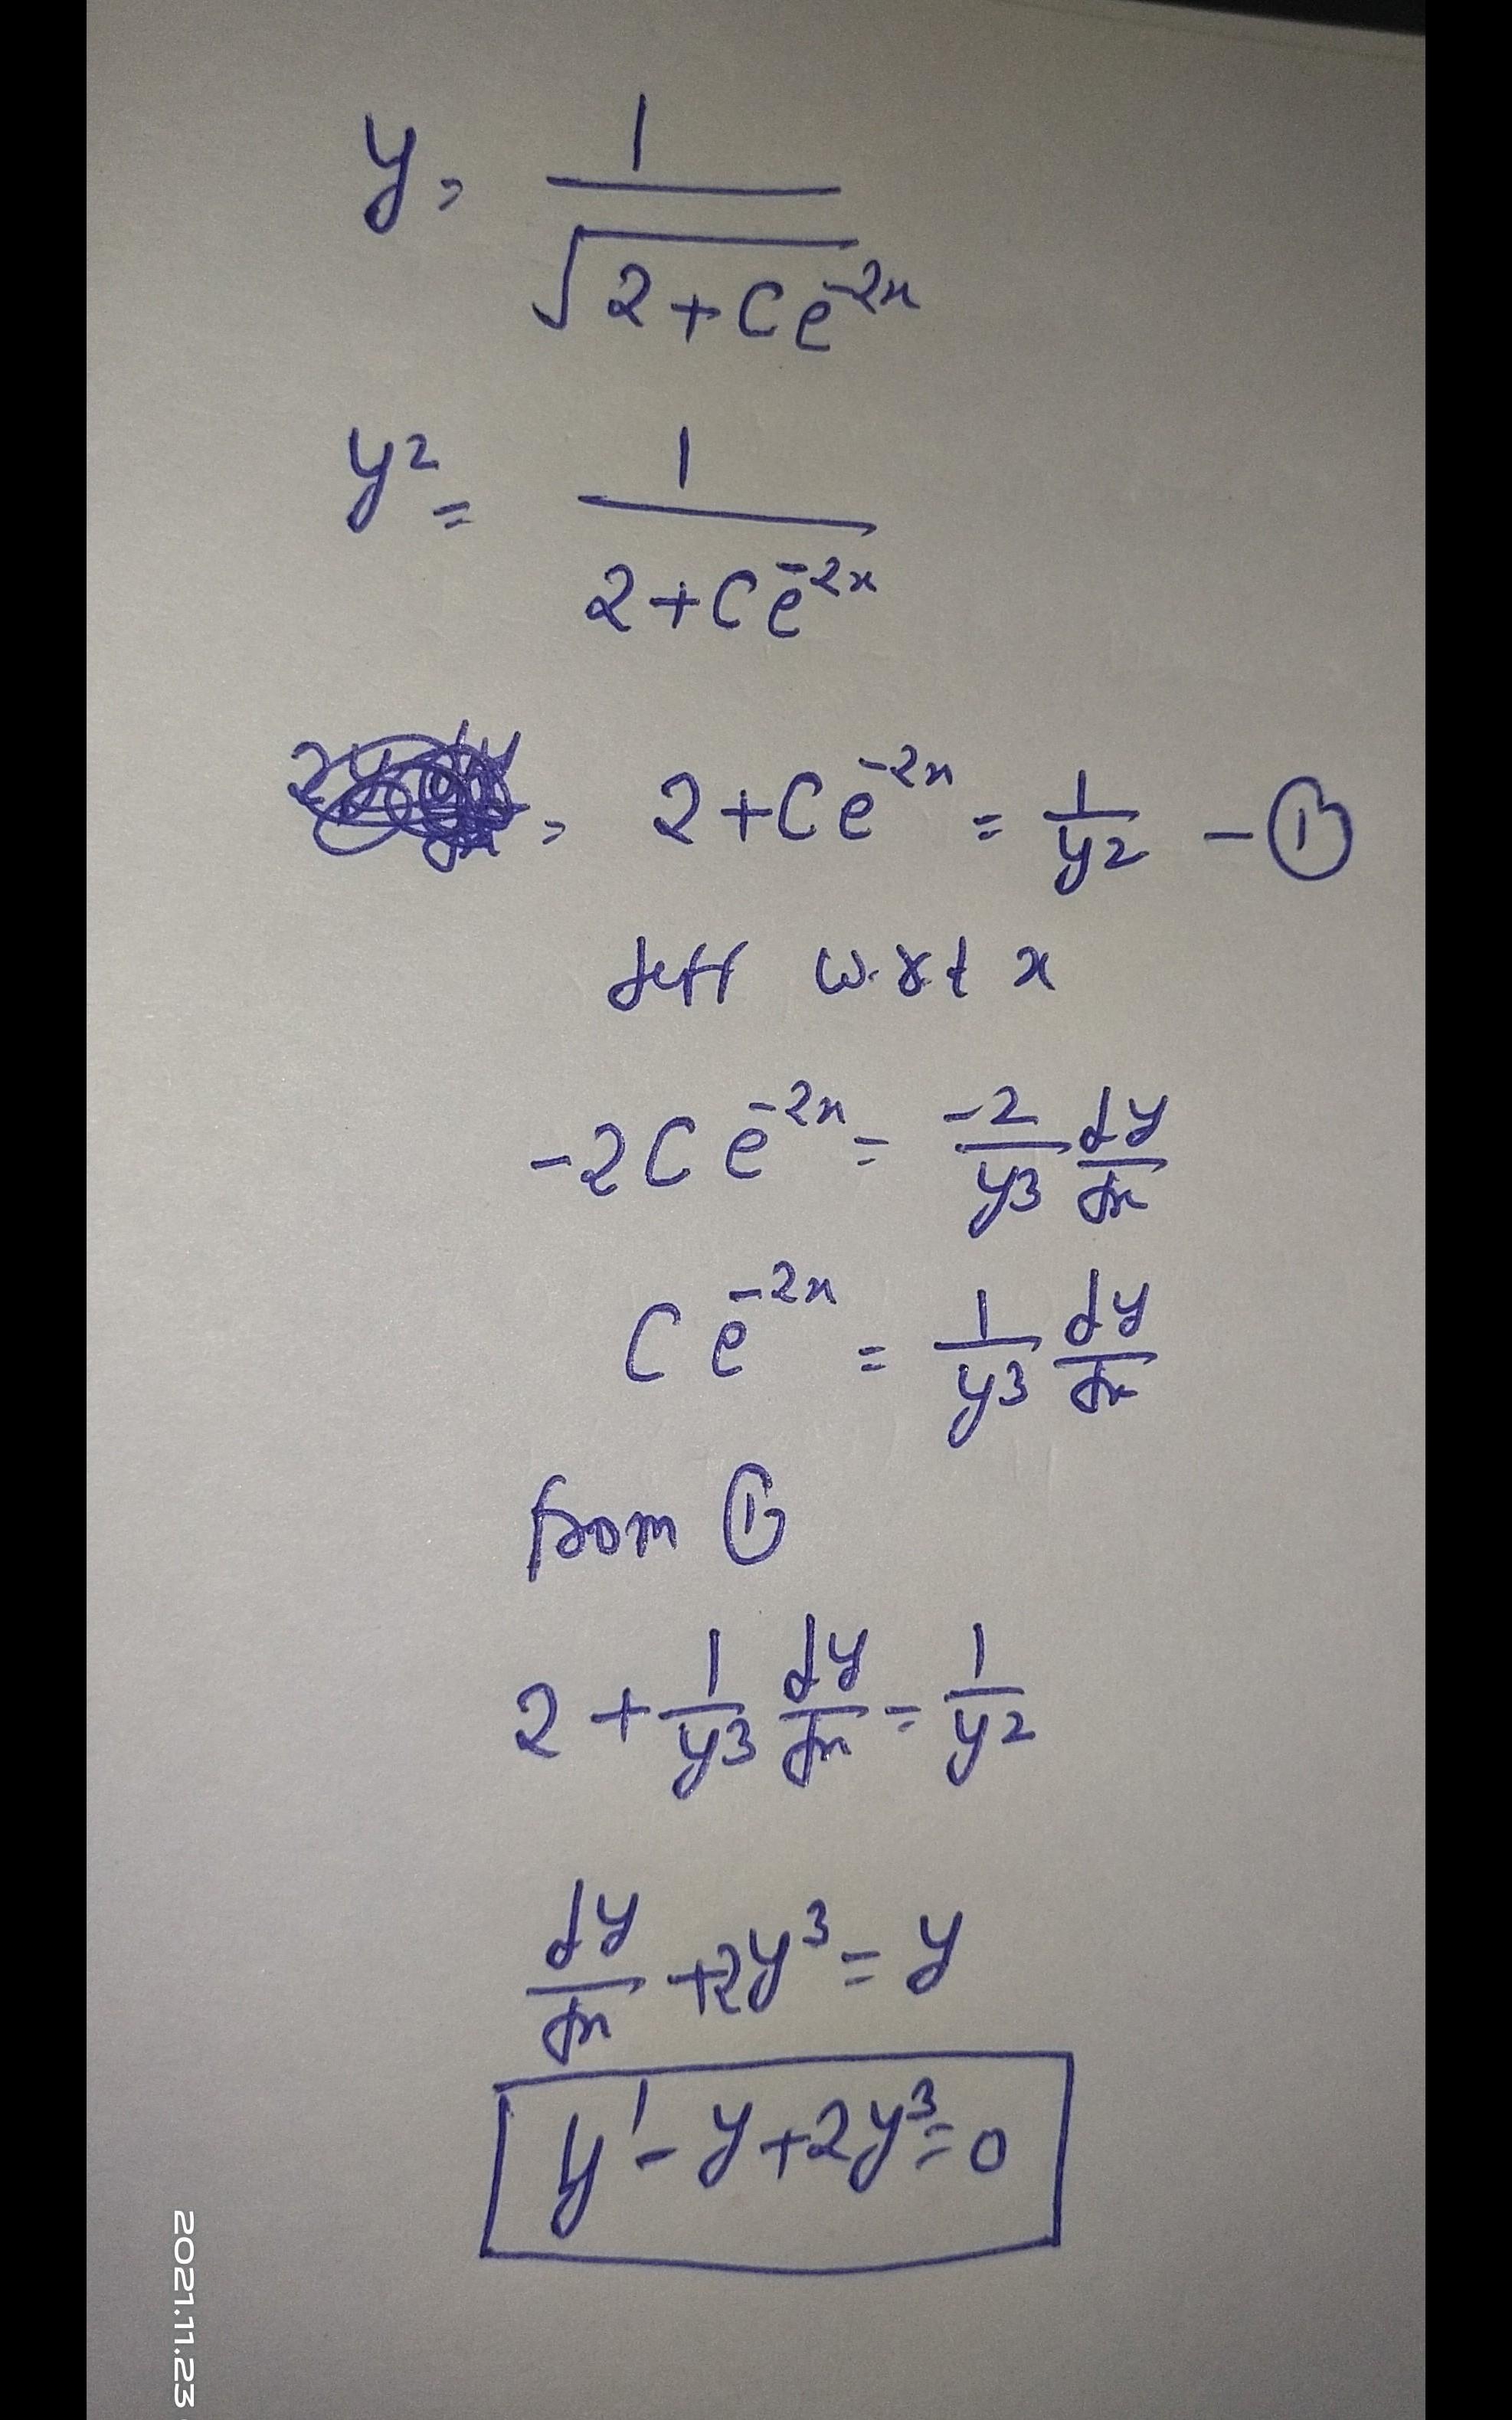 y = 1/√(2+Ce^-2x)
y² = 1/(2+Ce^-2x)
= 2+Ce^-2x = 1/y² - ①
diff w.r.t x
-2Ce^-2x = -2/y³ dy/dx
Ce^-2x = 1/y³ dy/dx
from ①
2 + 1/y³ dy/dx = 1/y²
dy/dx + 2y³ = y
y' - y + 2y³ = 0
2021.11.23